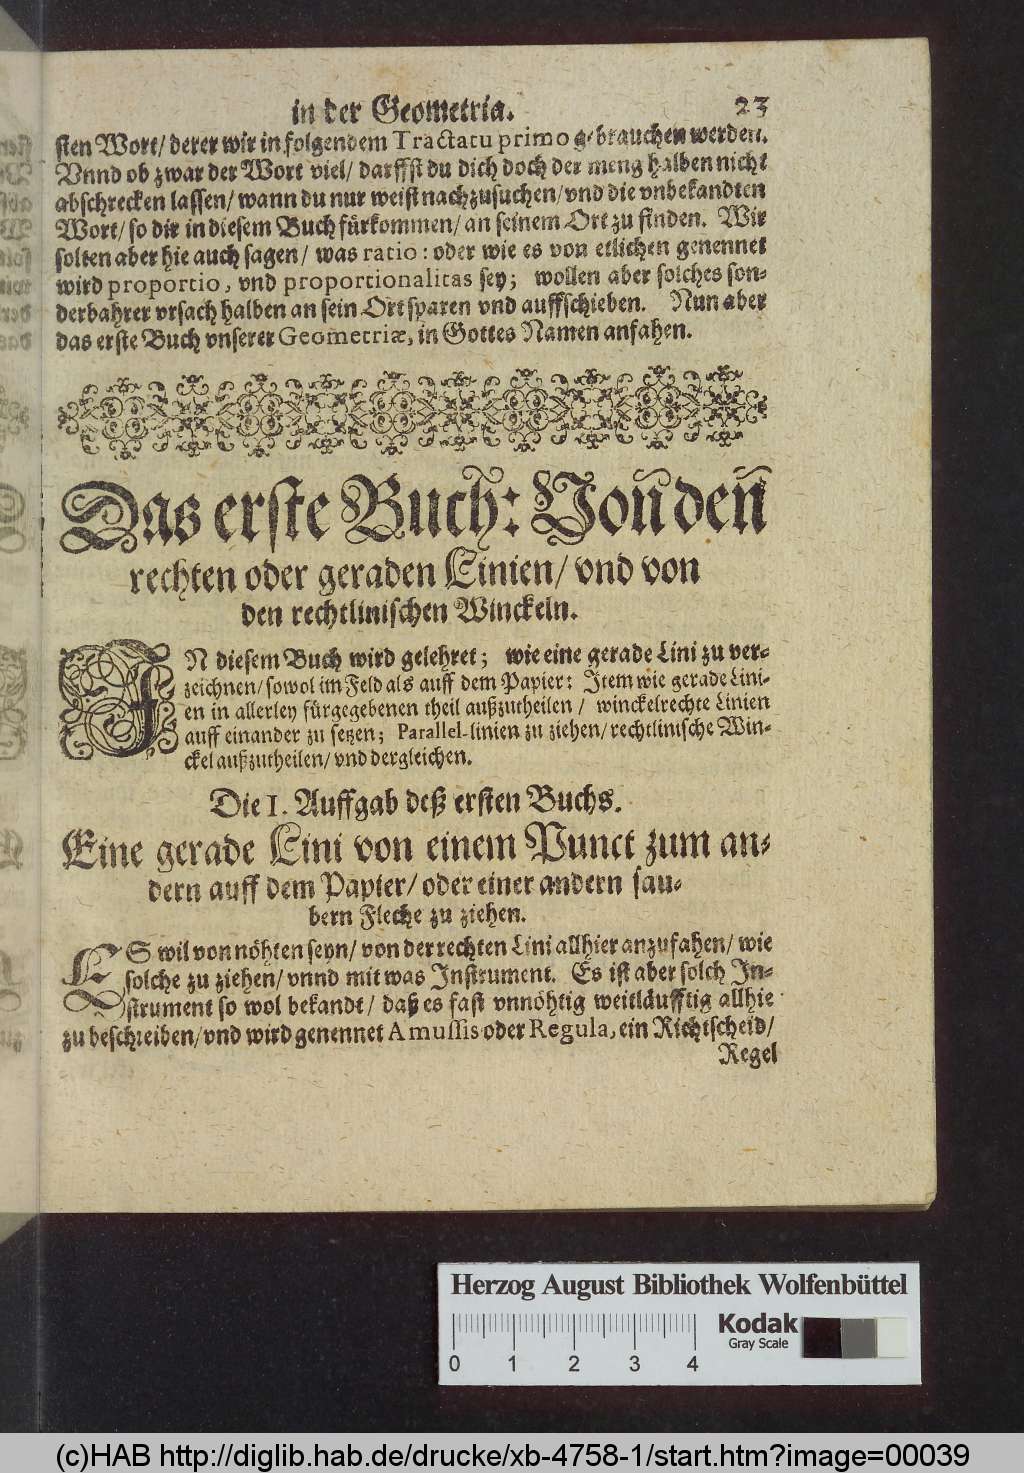 in der Geometria. 23
sten Wort/ derer wir in folgendem Tractatu primo gebrauchen werden.
Vnnd ob zwar der Wort viel/ darffst du dich doch der meng halben nicht
abschrecken lassen/ wann du nur weist nachzusuchen/ vnd die vnbekandten
Wort/ so dir in diesem Buch fürkommen/ an seinem Ort zu finden. Wir
solten aber hie auch sagen/ was ratio: oder wie es von etlichen genennet
wird proportio, vnd proportionalitas sey; wollen aber solches son-
derbahrer vrsach halben an sein Ort sparen vnd auffschieben. Nun aber
das erste Buch vnserer Geometriæ, in Gottes Namen anfahen.
Das erste Buch: Von den
rechten oder geraden Linien/ vnd von
den rechtlinischen Winckeln.
IN diesem Buch wird gelehret; wie eine gerade Lini zu ver-
zeichnen/ sowol im Feld als auff dem Papier: Item wie gerade Lini-
en in allerley fürgegebenen theil außzutheilen/ winckelrechte Linien
auff einander zu setzen; Parallel-linien zu ziehen/ rechtlinische Win-
ckel außzutheilen/ vnd dergleichen.
Die I. Auffgab deß ersten Buchs.
Eine gerade Lini von einem Punct zum an-
dern auff dem Papier/ oder einer andern sau-
bern Fleche zu ziehen.
ES wil von nöhten seyn/ von der rechten Lini allhier anzufahen/ wie
solche zu ziehen/ vnnd mit was Instrument. Es ist aber solch In-
strument so wol bekandt/ daß es fast vnnöhtig weitläufftig allhie
zu beschreiben/ vnd wird genennet Amussis oder Regula, ein Richtscheid/
Regel
Herzog August Bibliothek Wolfenbüttel
Kodak
Gray Scale
0 1 2 3 4
(c)HAB http://diglib.hab.de/drucke/xb-4758-1/start.htm?image=00039